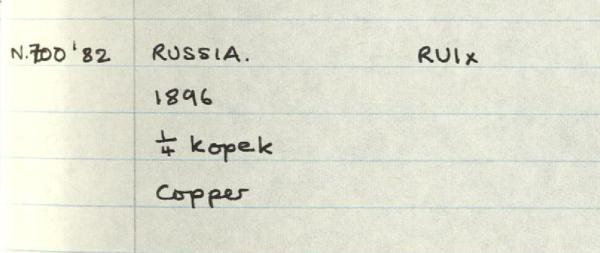 N.700 '82 RUSSIA. RUIx
1896
1/4 kopek
Copper